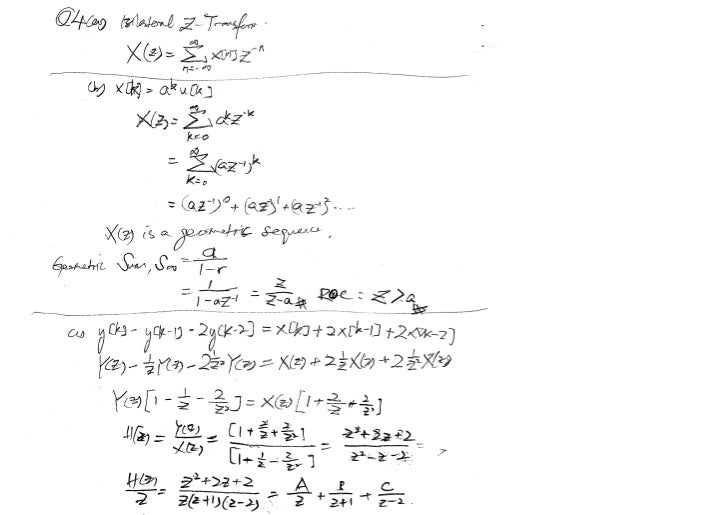 Q4(a) Bilateral Z-Transform.
X(z) = ∑_{n=-∞}^{∞} x[n] z^{-n}
(b) x[k] = a^k u[k]
X(z) = ∑_{k=0}^{∞} a^k z^{-k}
= ∑_{k=0}^{∞} (az^{-1})^k
= (az^{-1})^0 + (az^{-1})^1 + (az^{-1})^2 ....
X(z) is a geometric sequence.
Geometric Sum, S∞ = a/(1-r)
= 1/(1-az^{-1}) = z/(z-a) ROC: z>a
(c) y[k] - y[k-1] - 2y[k-2] = x[k] + 2x[k-1] + 2x[k-2]
Y(z) - 1/z Y(z) - 2 1/z² Y(z) = X(z) + 2 1/z X(z) + 2 1/z² X(z)
Y(z) [1 - 1/z - 2/z²] = X(z) [1 + 2/z + 2/z²]
H(z) = Y(z)/X(z) = [1 + 2/z + 2/z²]/[1 + 1/z - 2/z²] = (z²+2z+2)/(z²-z-2) =
H(z)/z = (z²+2z+2)/(z(z+1)(z-2)) = A/z + B/(z+1) + C/(z-2)